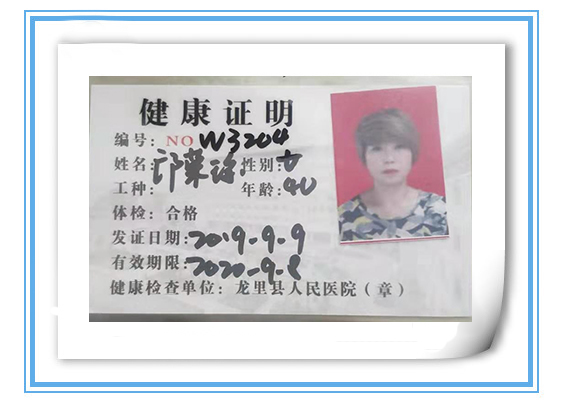 健康证明
编号: NO W3204
姓名: 邝荣 性别: 女
工种: 年龄: 40
体检: 合格
发证日期: 2019-9-9
有效期限: 2020-9-8
健康检查单位: 龙里县人民医院（章）